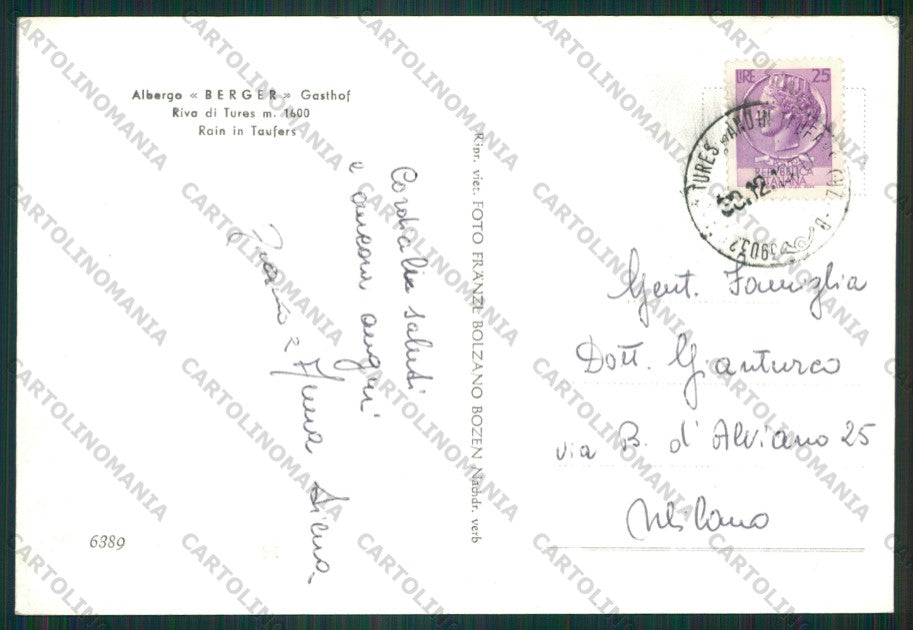 Albergo « BERGER » Gasthof
Riva di Tures m. 1600
Rain in Taufers
Cordiali saluti
e ancora auguri
6389
Ripr. viet. FOTO FRANZL BOLZANO BOZEN Nachdr. verb
LIRE 25
REPVBBLICA
ITALIANA
TURES
30.12
39032
Gent. Famiglia
Dott. Gianturco
via B. d'Alviano 25
Milano
CARTOLINOMANIA